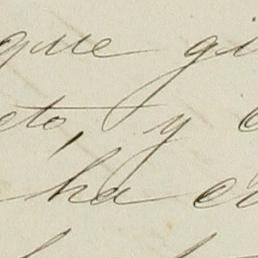 que gi
eto, y
ha